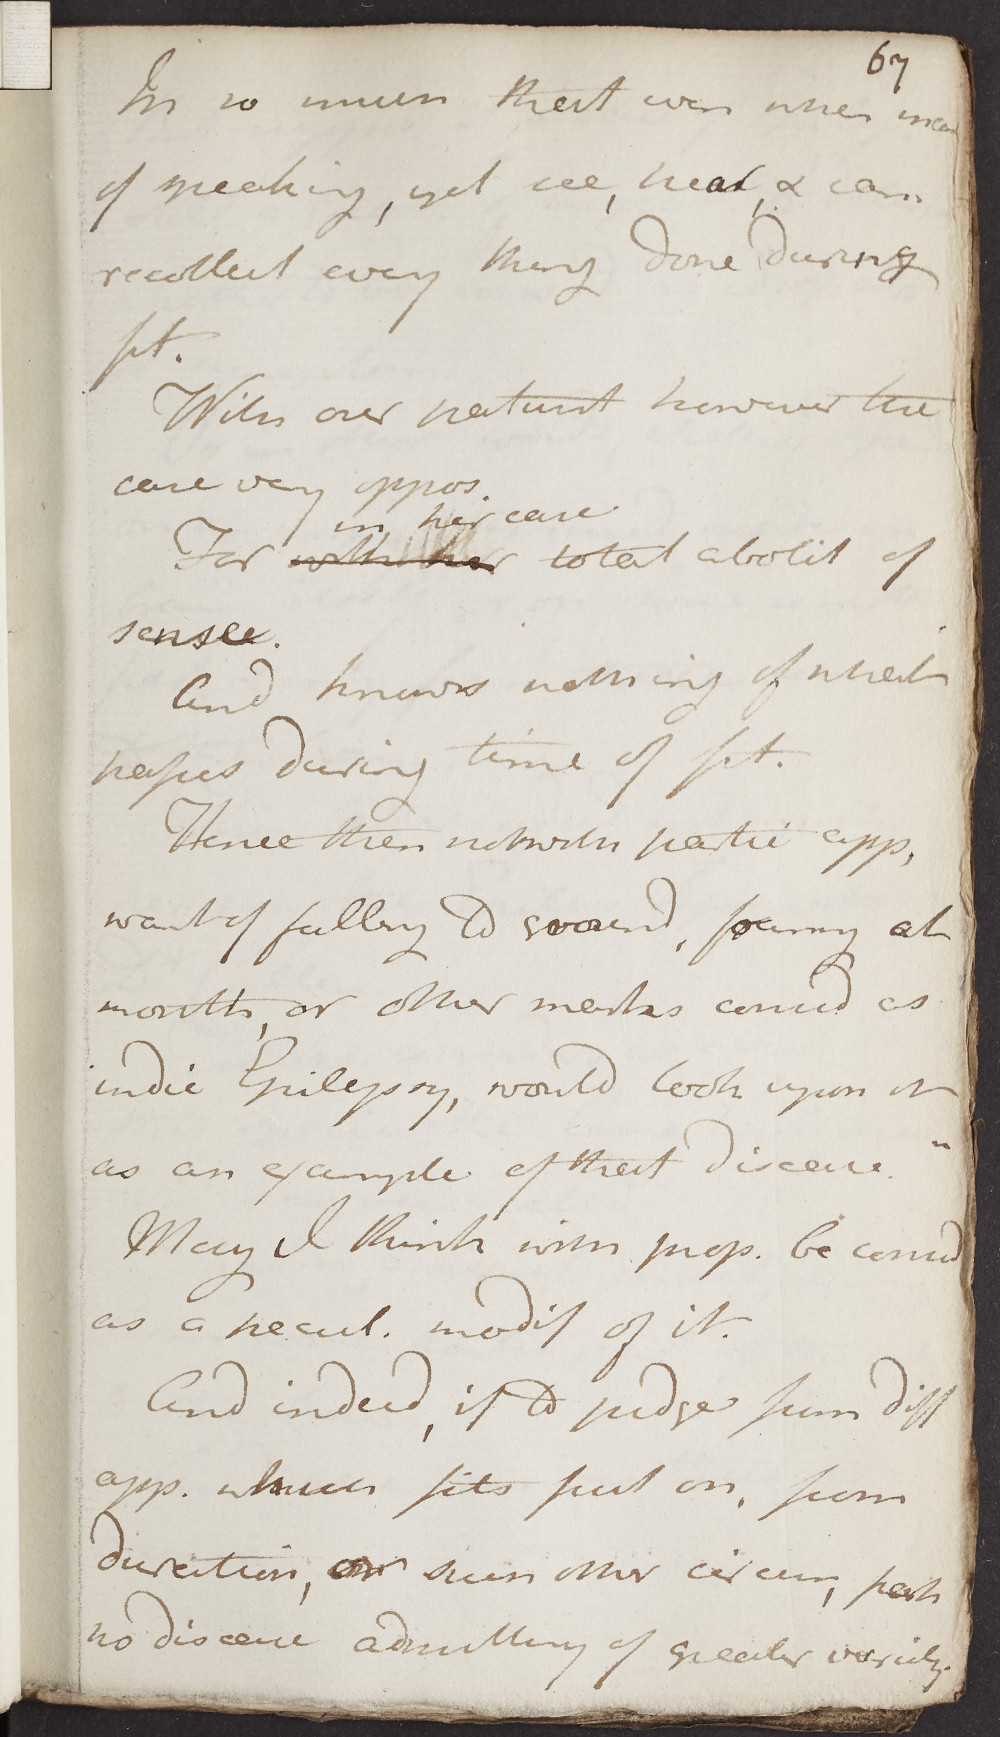 67
In so much that even when incap
of speaking, yet see, hear, & can
recollect every thing done during
fit.
With our patient however the
case very oppos.
in her case
For with her total abolit of
sense.
And knows nothing of what
passes during time of fit.
Hence then notwith partic app,
want of falling to ground, foaming at
mouth, or other marks consid as
indic Epilepsy, would look upon it
as an example of that disease.
May I think with prop. be consid
as a pecul. modif of it.
And indeed, if to judge from diff
app. which fits put on, from
duration, or from other circum, perh
no disease admitting of greater variety.